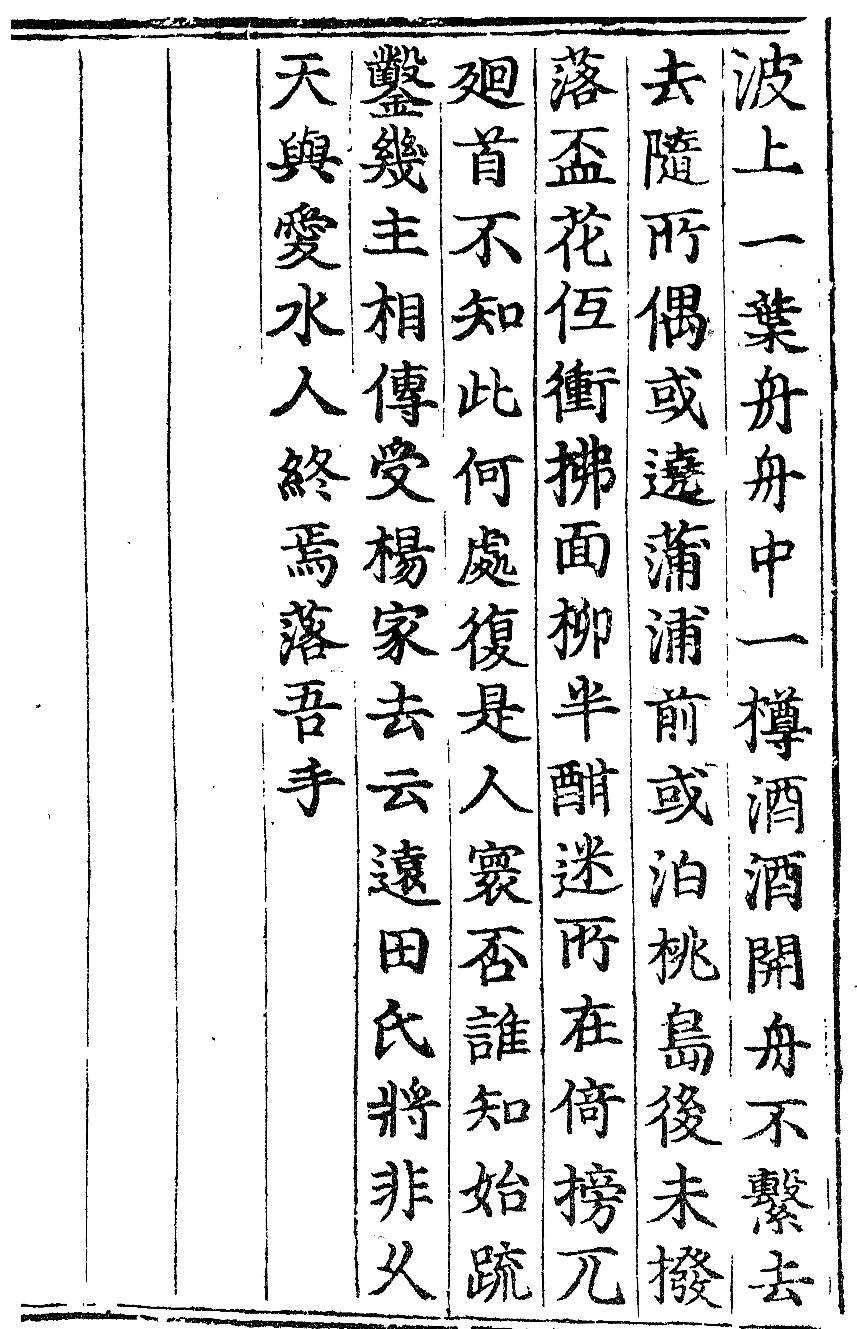 波上一葉舟舟中一樽酒酒開舟不繫去
去隨所偶或遶蒲浦前或泊桃島後未撥
落盃花仾衝拂面柳半酣迷所在倚搒兀
廻首不知此何處復是人寰否誰知始疏
鑿幾主相傳受楊家去云遠田氏將非久
天與愛水人終焉落吾手